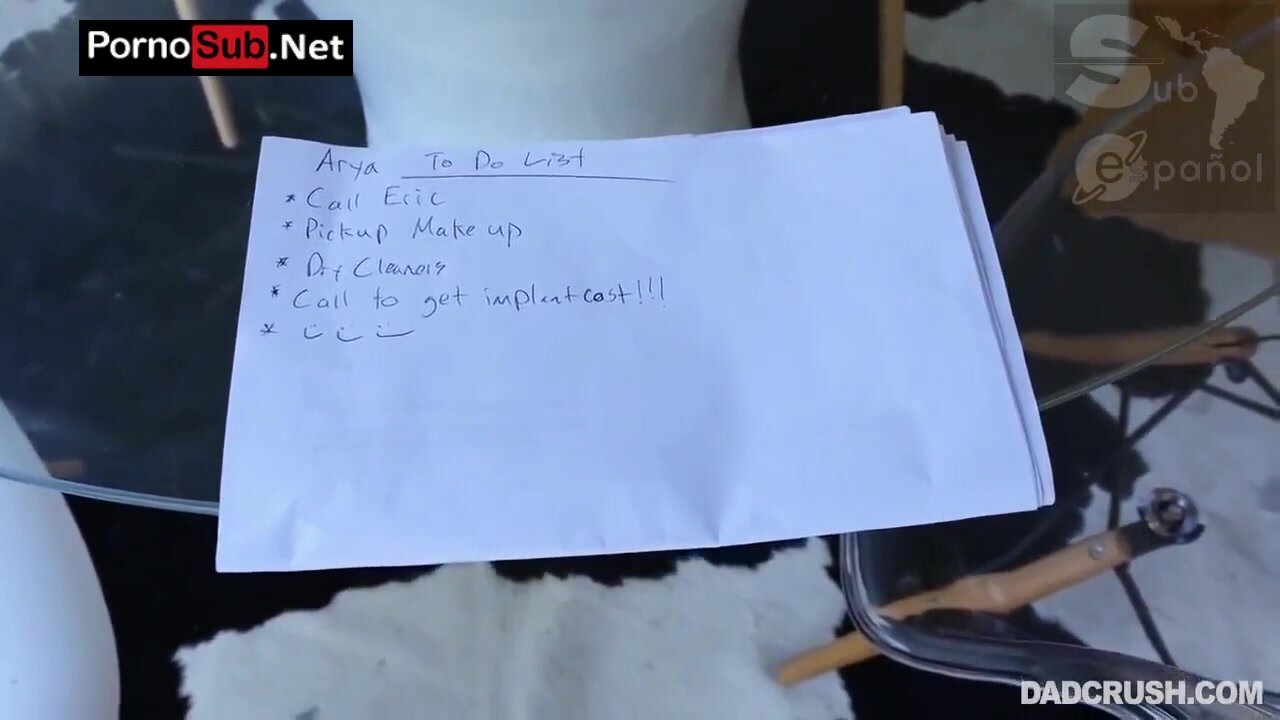 PornoSub.Net
Sub
español
Arya To Do List
* Call Eric
* Pickup Make up
* Dry Cleaners
* Call to get implant cost!!!
*
DADCRUSH.COM